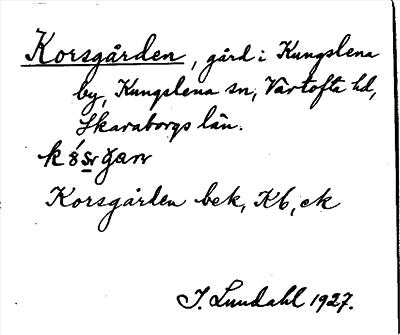 Korsgården, gård i Kungslena
by, Kungslena sn, Vartofta hd,
Skaraborgs län.
Korsgården bek, Kb, ek
I. Lundahl 1927.